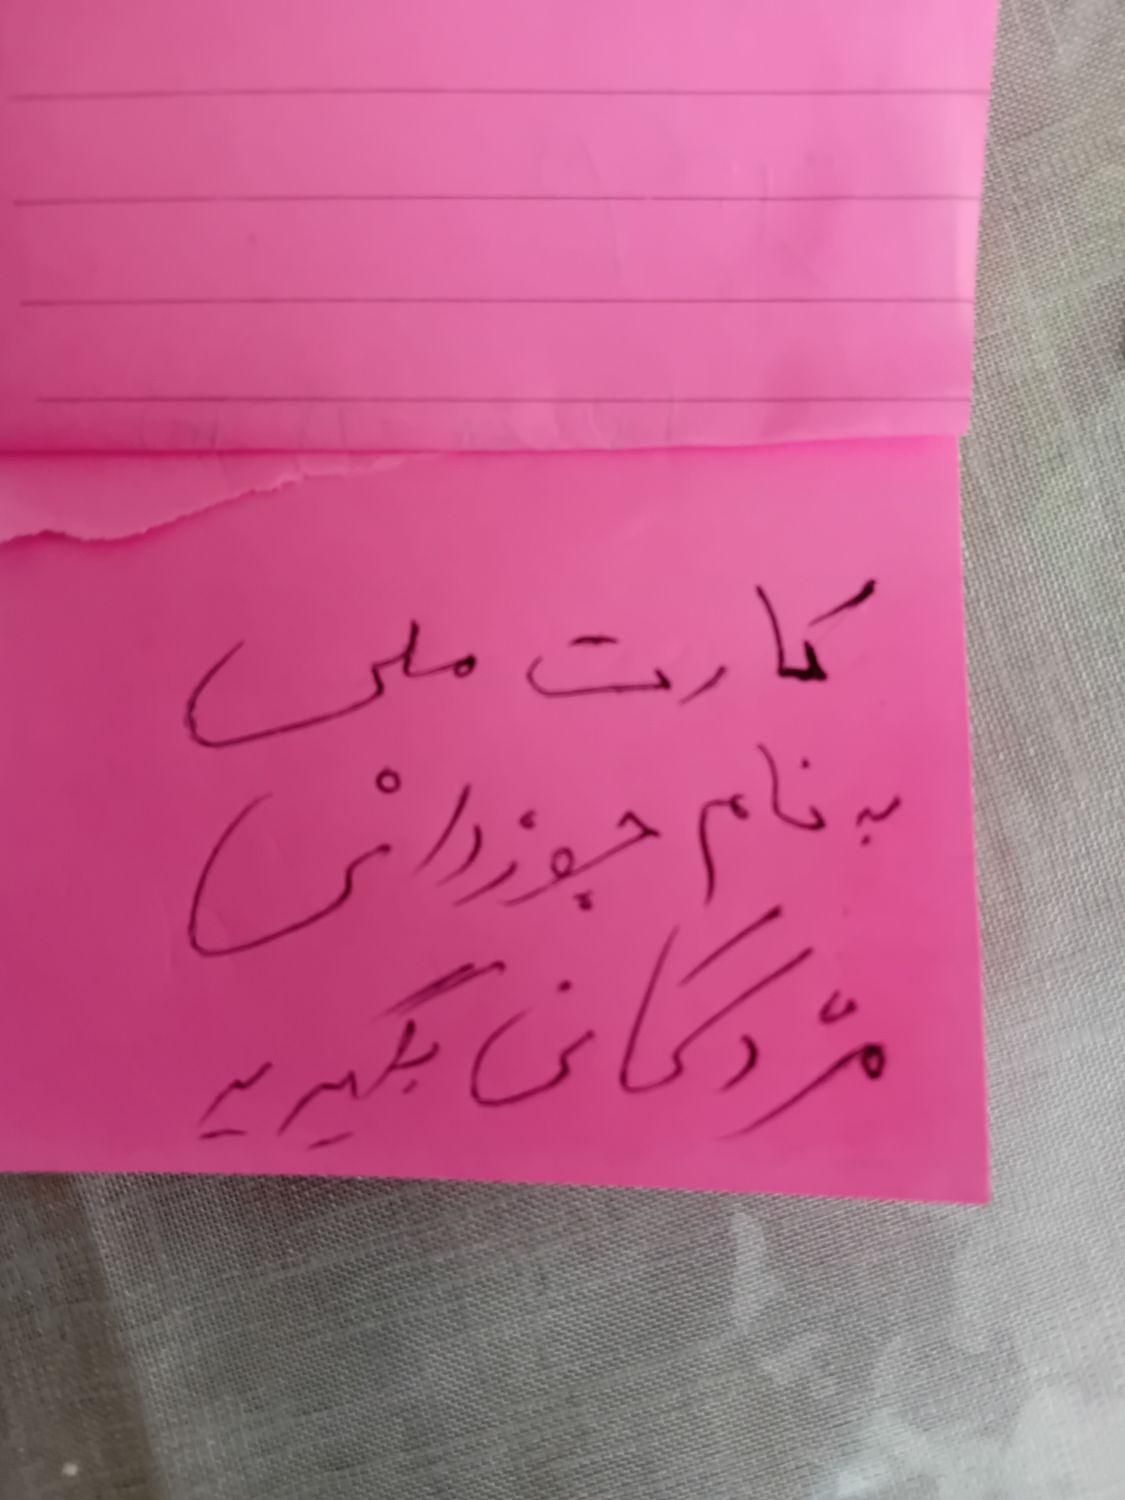 کارت ملی
به نام جوزدانی
مژدگانی بگیرید